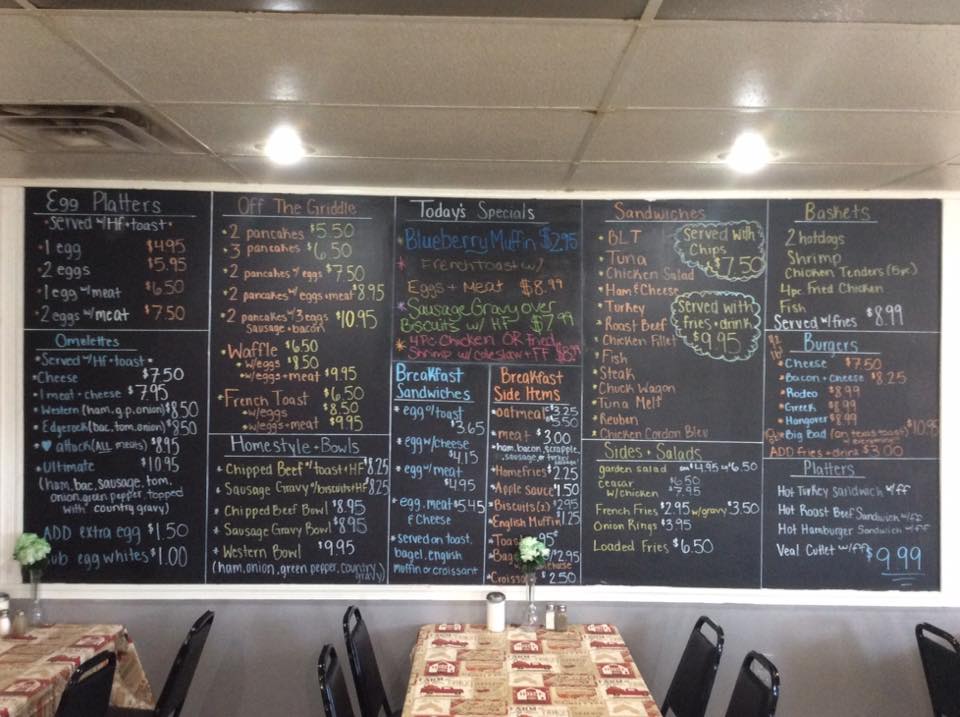 Egg Platters
*Served w/HF+toast*
*1 egg $4.95
*2 eggs $5.95
*1 egg w/meat $6.50
*2 eggs w/meat $7.50
Omelettes
*Served w/HF+toast*
*Cheese $7.50
*1 meat+cheese $7.95
*Western (ham, g.p, onion) $8.50
*Edgerock (bac, tom, onion) $8.50
*♥ attack (ALL meats) $8.95
*Ultimate $10.95
(ham, bac, sausage, tom,
onion, green pepper, topped
with country gravy)
ADD extra egg $1.50
sub egg whites $1.00
Off The Griddle
*2 pancakes $5.50
*3 pancakes $6.50
*2 pancakes w/eggs $7.50
*2 pancakes w/eggs+meat $8.95
*2 pancakes w/3 eggs $10.95
sausage+bacon
*Waffle $6.50
*w/eggs $8.50
*w/eggs+meat $9.95
*French Toast $6.50
*w/eggs $8.50
*w/eggs+meat $9.95
Homestyle+Bowls
*Chipped Beef w/toast+HF $8.25
*Sausage Gravy w/biscuits+HF $8.25
*Chipped Beef Bowl $8.95
*Sausage Gravy Bowl $8.95
*Western Bowl $9.95
(ham, onion, green pepper, country
gravy)
Today's Specials
*Blueberry Muffin $2.95
*French Toast w/
Eggs+Meat $8.99
*Sausage Gravy over
Biscuits w/ HF $7.99
*4 Pc Chicken OR fried
Shrimp w/ coleslaw+FF $8.99
Breakfast
Sandwiches
*egg w/toast
$3.65
*egg w/cheese
$4.15
*egg w/meat
$4.95
*egg, meat $5.45
+ Cheese
*served on toast,
bagel, english
muffin or croissant
Breakfast
Side Items
*oatmeal c $3.25
$5.50
*meat $3.00
*ham, bacon, scrapple,
sausage, or turkey
sausage
*Homefries $2.25
*Apple sauce $1.50
*Biscuits (2) $2.95
*English Muffin $1.25
*Toast .95¢
*Bag $2.95
*Croiss $2.50
Sandwiches
*BLT
*Tuna
*Chicken Salad
*Ham & Cheese
*Turkey
*Roast Beef
*Chicken Fillet
*Fish
*Steak
*Chuck Wagon
*Tuna Melt
*Reuben
*Chicken Cordon Bleu
Served with
Chips
$7.50
Served with
fries+drink
$9.95
Sides+Salads
garden salad sm $4.95 lg $6.50
ceasar $6.50
w/chicken $7.95
French Fries $2.95 w/gravy $3.50
Onion Rings $3.95
Loaded Fries $6.50
Baskets
2 hotdogs
Shrimp
Chicken Tenders (5pc)
4pc Fried Chicken
Fish
Served w/fries $8.99
Burgers
*Cheese $7.50
*Bacon+Cheese $8.25
*Rodeo $8.99
*Greek $8.99
*Hangover $8.99
*Big Bad (on texas toast) $10.95
everything
ADD Fries+drink $3.00
Platters
Hot Turkey sandwich w/ff
Hot Roast Beef Sandwich w/ff
Hot Hamburger Sandwich w/ff
Veal Cutlet w/ff $9.99